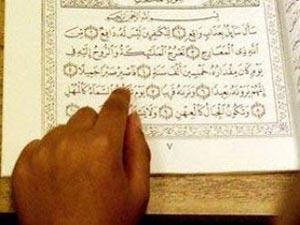 بِسْمِ اللَّهِ الرَّحْمَٰنِ الرَّحِيمِ
سَأَلَ سَائِلٌ بِعَذَابٍ وَاقِعٍ ۝١ لِلْكَافِرِينَ لَيْسَ لَهُ دَافِعٌ ۝٢ مِنَ
اللَّهِ ذِي الْمَعَارِجِ ۝٣ تَعْرُجُ الْمَلَائِكَةُ وَالرُّوحُ إِلَيْهِ فِي
يَوْمٍ كَانَ مِقْدَارُهُ خَمْسِينَ أَلْفَ سَنَةٍ ۝٤ فَاصْبِرْ صَبْرًا جَمِيلًا ۝٥
إِنَّهُمْ يَرَوْنَهُ بَعِيدًا ۝٦ وَنَرَاهُ قَرِيبًا ۝٧ يَوْمَ السَّمَاءُ كَالْمُهْلِ
۝٨ وَتَكُونُ الْجِبَالُ كَالْعِهْنِ ۝٩ وَلَا
٧